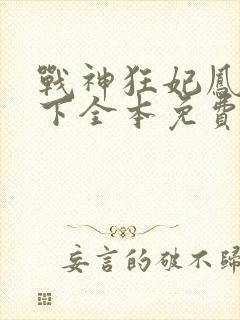 戰神狂妃鳳
下全本免費
妄言的破不歸